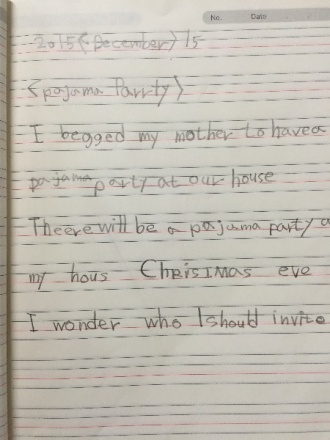 No. Date
2015 <December> 15
<pajama Parrty>
I begged my mother to have a
pajama party at our house
Theere will be a pajama party a
my hous Chrisimas eve
I wonder who I should invite